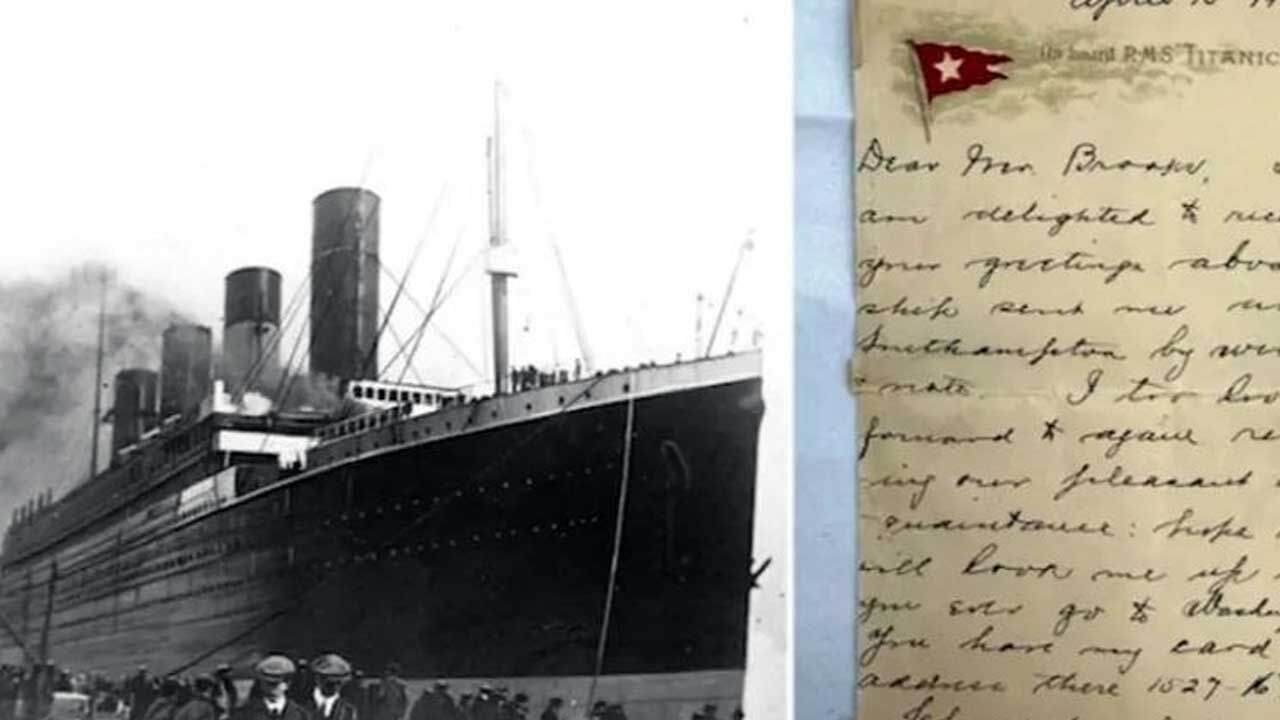 April
On board R.M.S "TITANIC
Dear Mr.
am delighted to
your greetings
ship sent me
Southampton by
note. I too
forward to again re
ing our pleasant
quaintance: hope
will look me up
you ever go to
You have my card
address there 1527-16